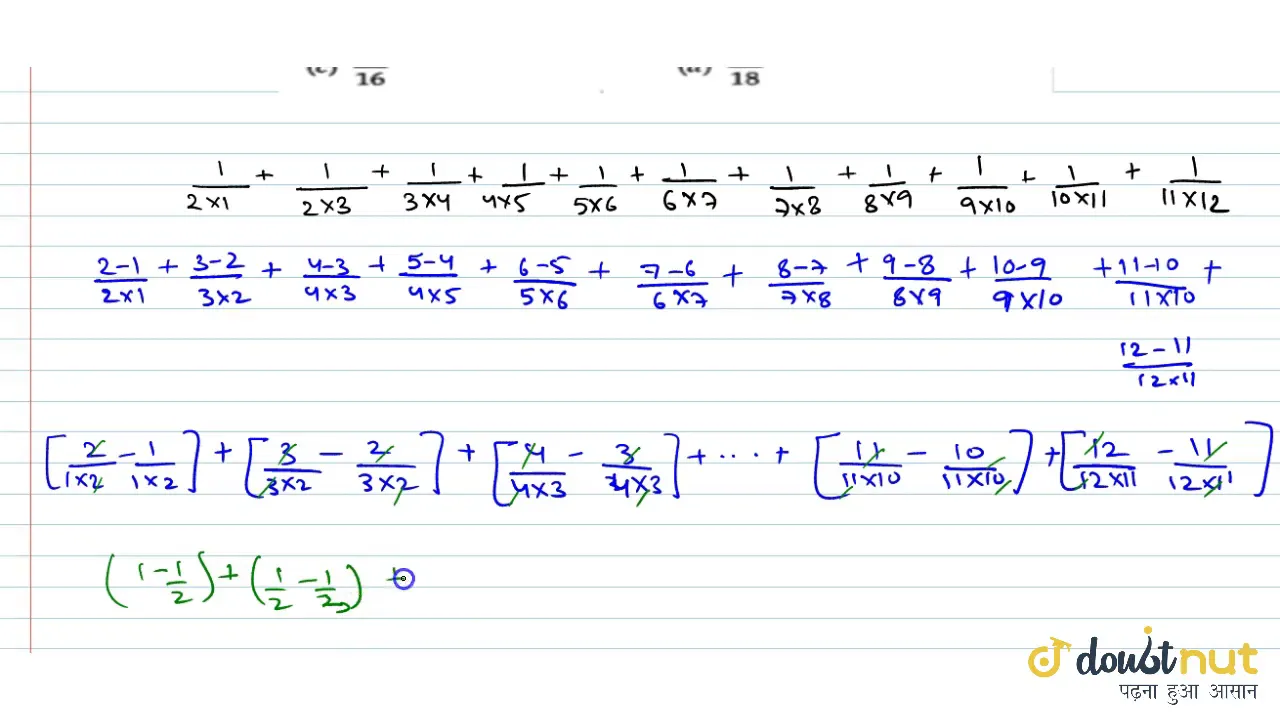 (c) 16 (d) 18
1/(2×1) + 1/(2×3) + 1/(3×4) + 1/(4×5) + 1/(5×6) + 1/(6×7) + 1/(7×8) + 1/(8×9) + 1/(9×10) + 1/(10×11) + 1/(11×12)
(2-1)/(2×1) + (3-2)/(3×2) + (4-3)/(4×3) + (5-4)/(4×5) + (6-5)/(5×6) + (7-6)/(6×7) + (8-7)/(7×8) + (9-8)/(8×9) + (10-9)/(9×10) + (11-10)/(11×10) +
(12-11)/(12×11)
[2/(1×2) - 1/(1×2)] + [3/(3×2) - 2/(3×2)] + [4/(4×3) - 3/(4×3)] + ... + [11/(11×10) - 10/(11×10)] + [12/(12×11) - 11/(12×11)]
(1 - 1/2) + (1/2 - 1/3) +
doubtnut
पढ़ना हुआ आसान